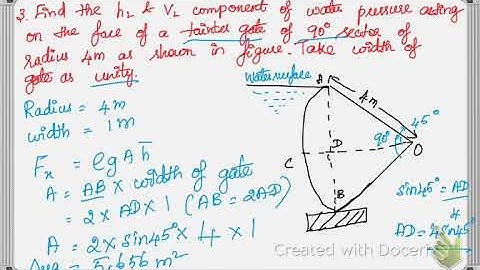 3. Find the h₂ & V₂ component of water pressure acting
on the face of a tainter gate of 90° sector of
radius 4m as shown in figure. Take width of
gate as unity.
Radius = 4m
width = 1m
Fₓ = ρgAh̄
A = AB × width of gate
= 2 × AD × 1 (AB = 2AD)
A = 2 × sin45° × 4 × 1
= 5.656 m²
Water surface
A
4m
45°
90°
O
C
D
B
sin45° = AD/4
AD = 4 sin45°
Created with Docer